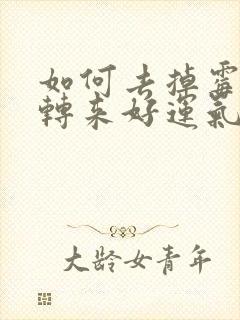 如何去掉霉
轉来好運氣
大龄女青年